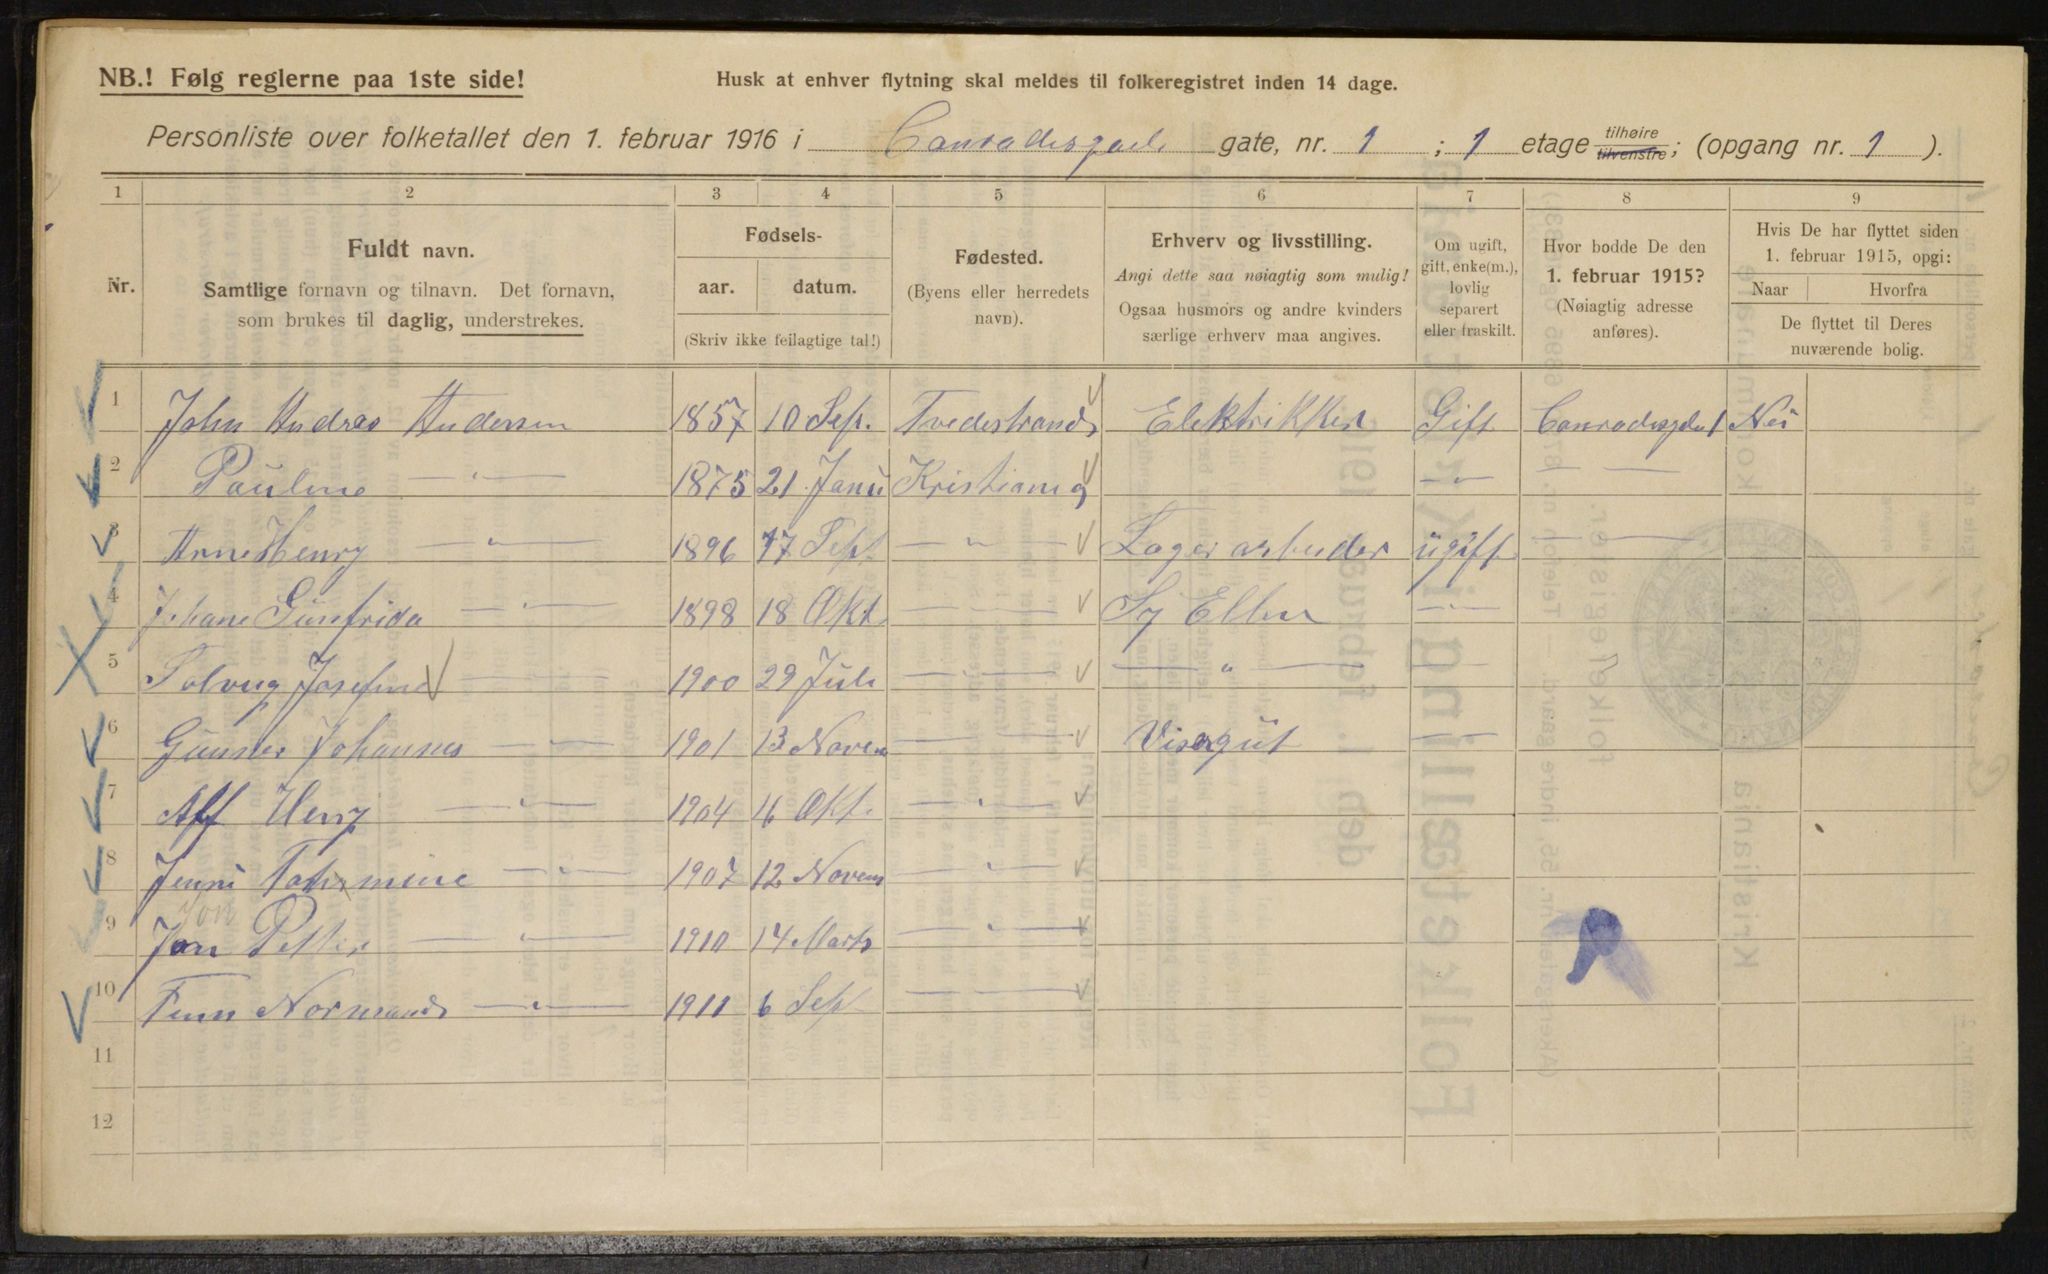 NB.! Følg reglerne paa 1ste side!
Husk at enhver flytning skal meldes til folkeregistret inden 14 dage.
Personliste over folketallet den 1. februar 1916 i Conradisgade gate, nr. 1 ; 1 etage tilhøire tilvenstre; (opgang nr. 1 ).
1 2 3 4 5 6 7 8 9
Nr.
Fuldt navn.
Samtlige fornavn og tilnavn. Det fornavn,
som brukes til daglig, understrekes.
Fødsels-
aar. datum.
(Skriv ikke feilagtige tal!)
Fødested.
(Byens eller herredets
navn).
Erhverv og livsstilling.
Angi dette saa nøiagtig som mulig!
Ogsaa husmors og andre kvinders
særlige erhverv maa angives.
Om ugift,
gift, enke(m.),
lovlig
separert
eller fraskilt.
Hvor bodde De den
1. februar 1915?
(Nøiagtig adresse
anføres).
Hvis De har flyttet siden
1. februar 1915, opgi:
Naar Hvorfra
De flyttet til Deres
nuværende bolig.
1 John Andreas Andersen 1857 10 Sep. Tvedestrand Elektrikker Gift Conradisgde 1 Nei
2 Pauline — " — 1875 21 Janu Kristiania — " — — —
3 Arne Henry — " — 1896 17 Sept — " — Lagerarbeider ugift — —
4 Johane Gunfrida — " — 1898 18 Okt — " — Sy Elev — " —
5 Solveig Josefine 1900 29 Juli — " — — " —
6 Gunner Johannes — " — 1901 13 Novem — " — Visergut — " —
7 Alf Henry — " — 1904 16 Okt. — " —
8 Jenni — " — 1907 12 Novem — " —
9 Jon Petter — " — 1910 14 Marts — " —
10 Finn Normand — " — 1911 6 Sep — " —
11
12